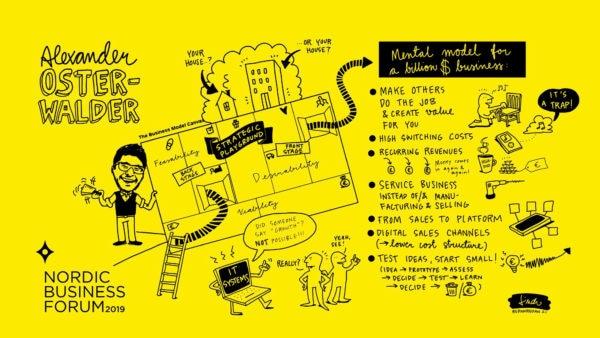 Alexander
OSTER-
WALDER
YOUR
HOUSE..?
...OR YOUR
HOUSE?
The Business Model Canvas
STRATEGIC
PLAYGROUND
Feasability
BACK
STAGE
FRONT
STAGE
Desirability
Viability
DID SOMEONE
SAY "GROWTH"?
NOT POSSIBLE!!!
IT
SYSTEMS
REALLY?
YEAH,
SEE!
NORDIC
BUSINESS
FORUM 2019
Mental model for
a billion $ business:
MAKE OTHERS
DO THE JOB
& CREATE value
FOR YOU
IT'S
A TRAP!
HIGH SWITCHING COSTS
RECURRING REVENUES
Money comes
in again &
again!
€ € € €
SERVICE BUSINESS
INSTEAD OF/& MANU-
FACTURING & SELLING
FROM SALES TO PLATFORM
DIGITAL SALES CHANNELS
(→ lower cost structure)
TEST IDEAS, START SMALL!
(IDEA → PROTOTYPE → ASSESS
→ DECIDE → TEST → LEARN
→ DECIDE →